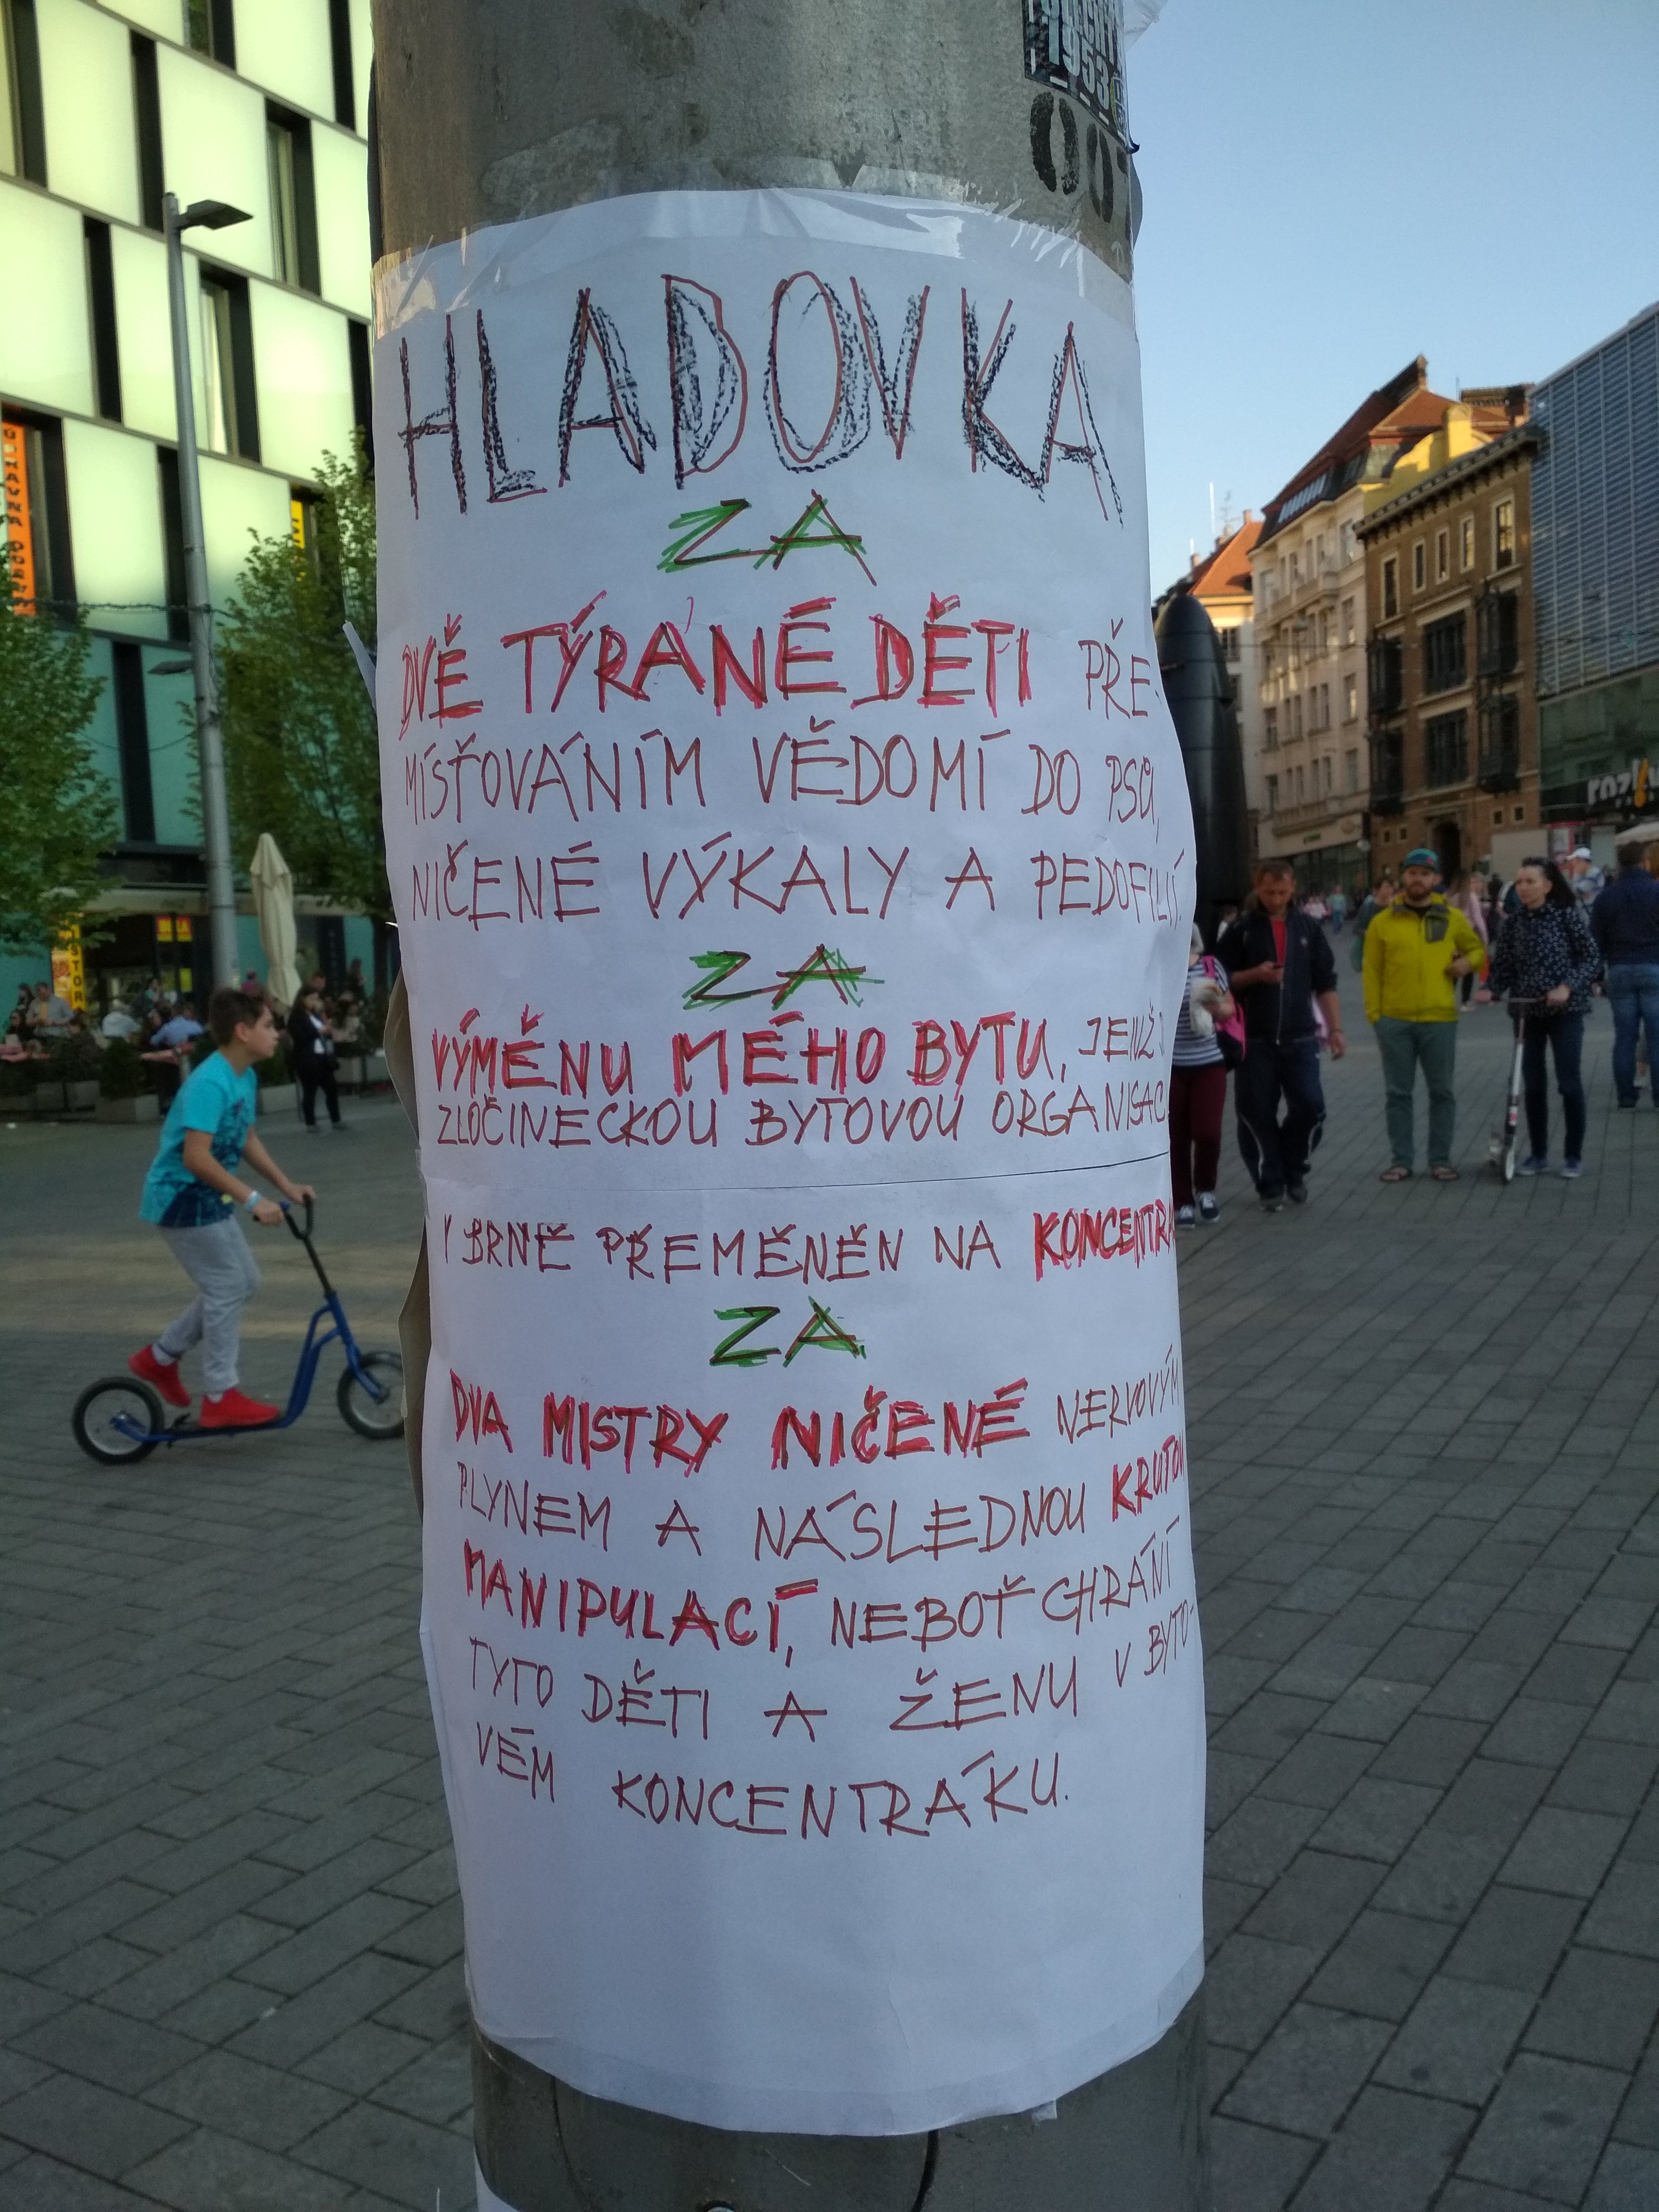 1953
HLADOVKA
ZA
DVĚ TÝRANÉ DĚTI PŘE-
MÍSŤOVÁNÍM VĚDOMÍ DO PSŮ,
NIČENÉ VÝKALY A PEDOFILIÍ.
ZA
VÝMĚNU MÉHO BYTU, JENŽ J
ZLOČINECKOU BYTOVOU ORGANISAC
V BRNĚ PŘEMĚNĚN NA KONCENTRA
ZA
DVA MISTRY NIČENÉ NERVOVÝM
PLYNEM A NÁSLEDNOU KRUTOU
MANIPULACÍ, NEBOŤ CHRÁNÍ
TYTO DĚTI A ŽENU V BYTO-
VÉM KONCENTRÁKU.
BILLA